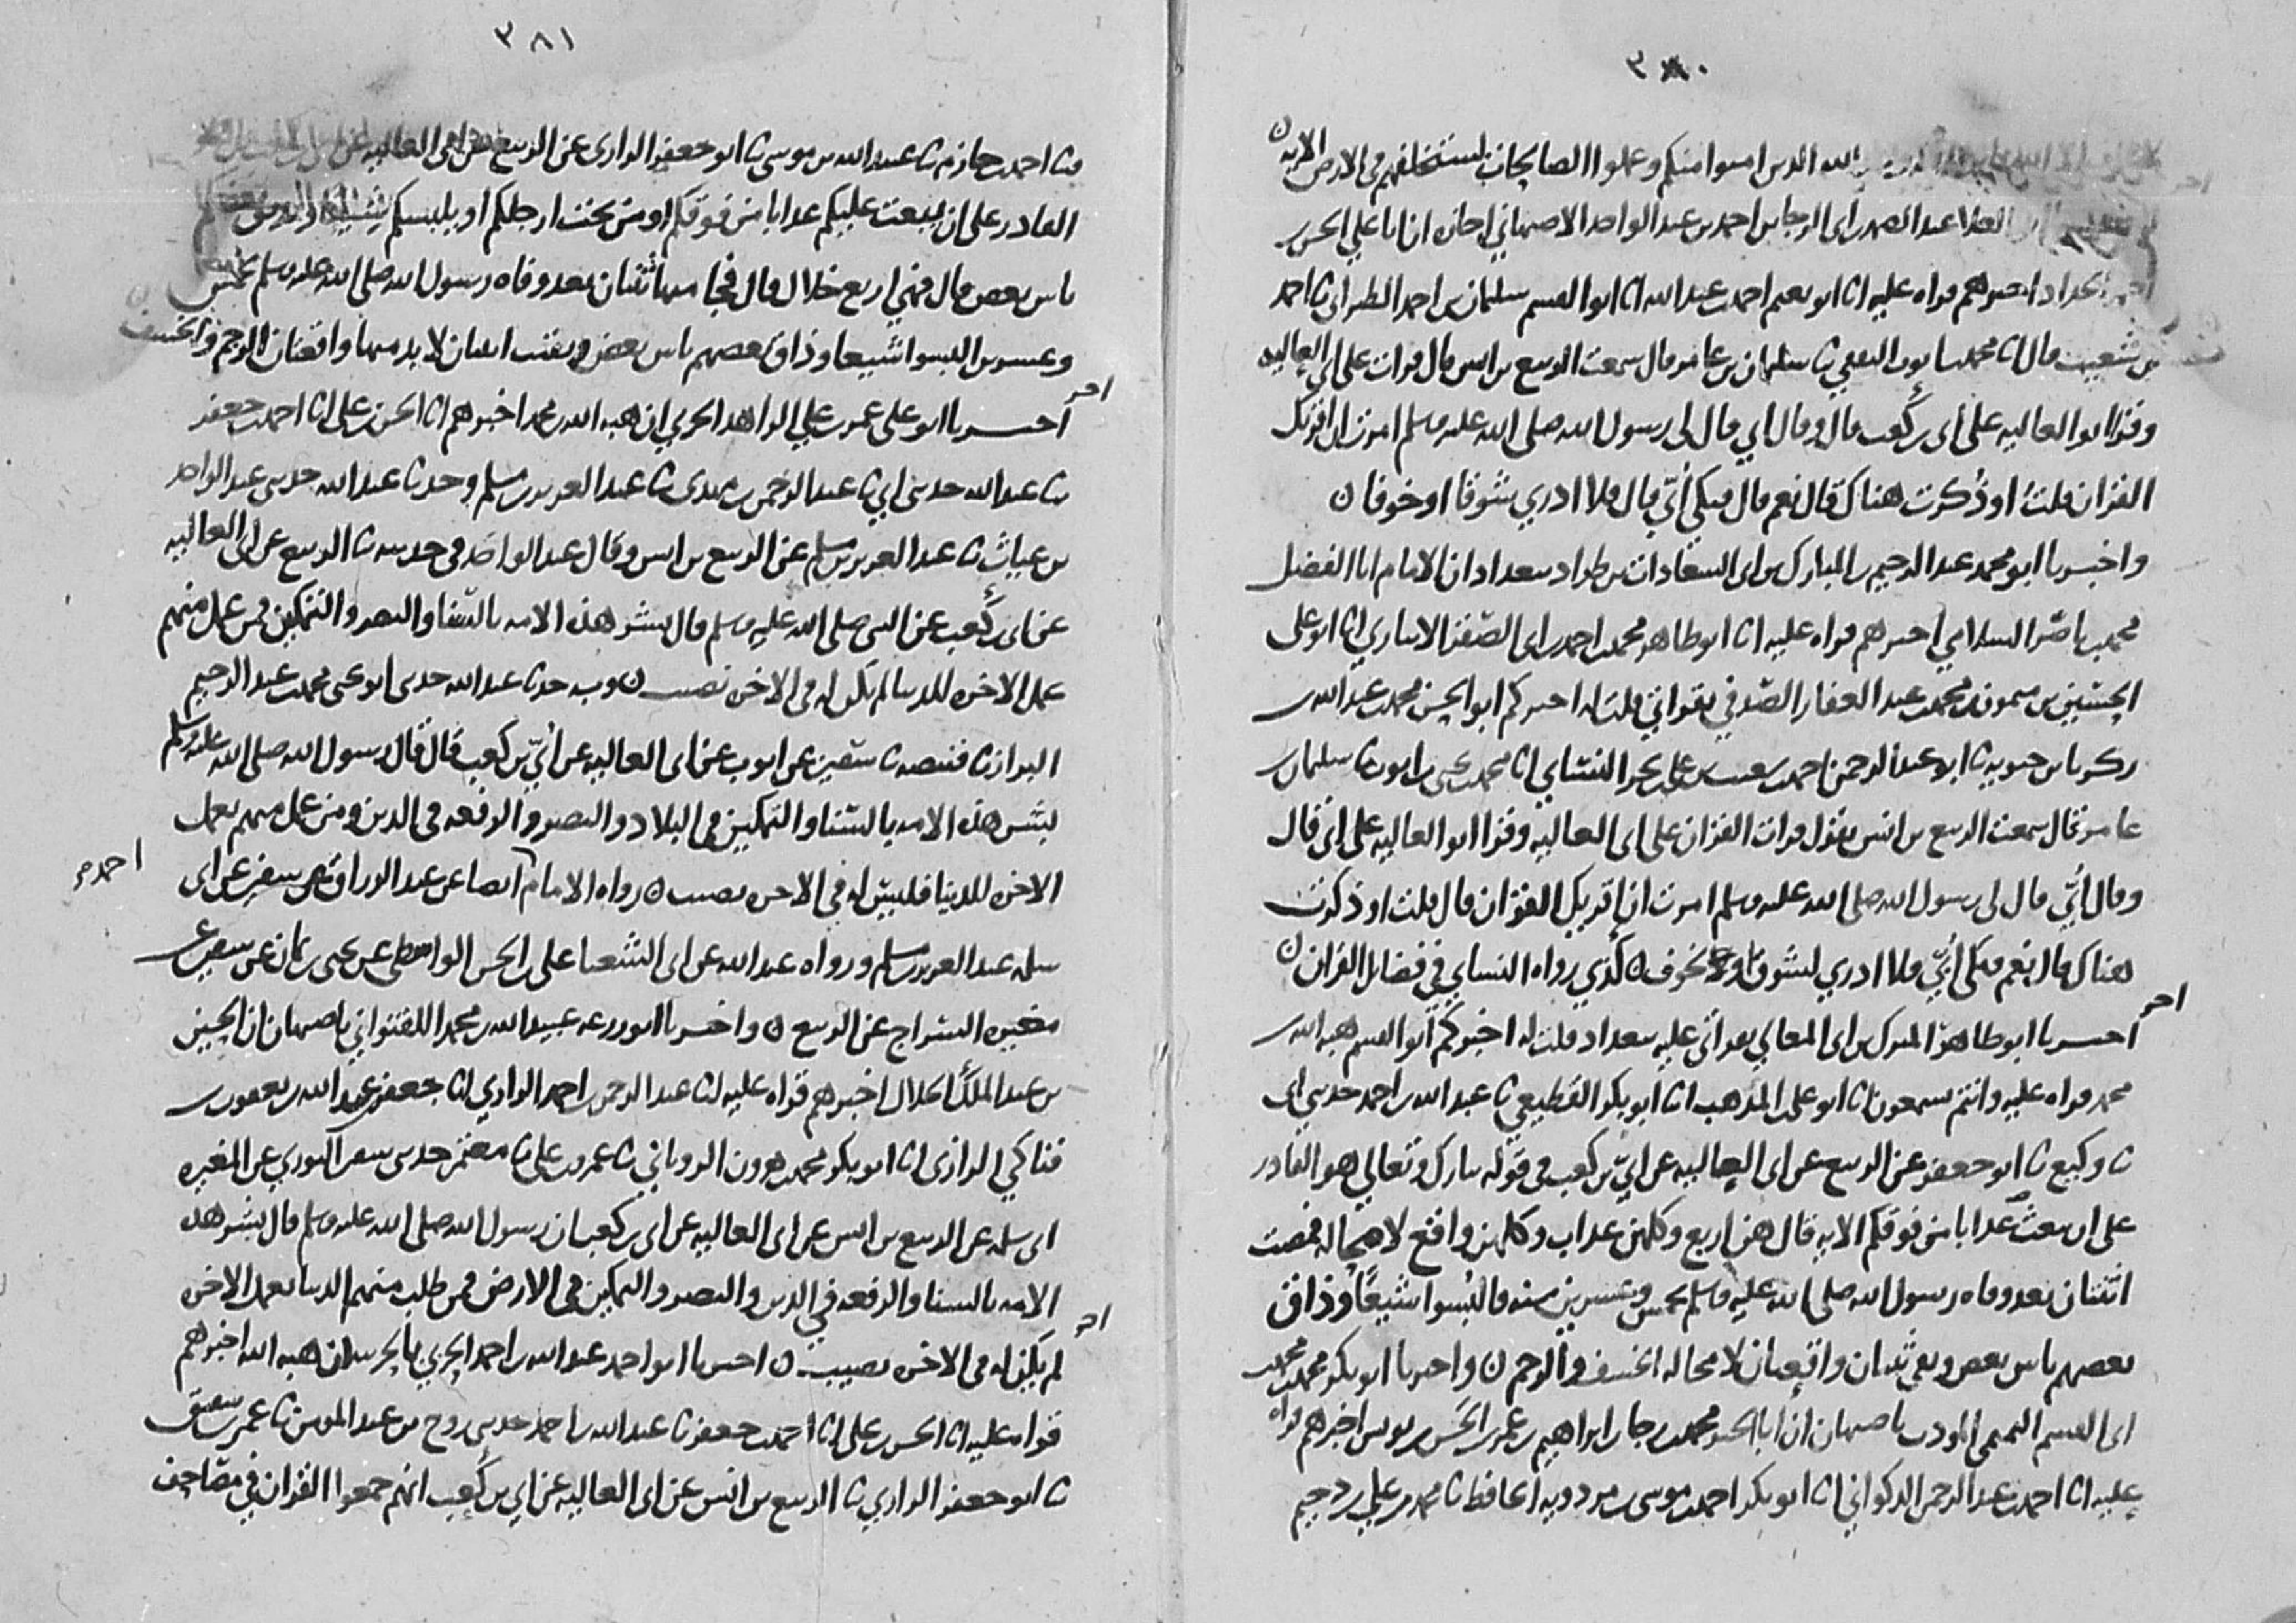 ٣٨٠
الله الذين امنوا منكم وعملوا الصالحات ليستخلفنهم في الارض الايه
العلا عبد الصمد بن ابي الرجا بن احمد بن عبد الواحد الاصبهاني اجازه ان ابا علي الحسن بن
الحداد اخبرهم قراه عليه انا ابو نعيم احمد بن عبد الله انا ابو القسم سليمان بن احمد الطبراني ثا احمد
بن شعيب قال انا محمد بن ايوب ثا سليمان بن عامر قال سمعت الربيع بن انس قال قرات على ابي العاليه
وقرا ابو العاليه على ابي بن كعب قال وقال ابي قال لي رسول الله صلى الله عليه وسلم امرت ان اقرئك
القران قلت او ذُكرت هناك قال نعم قال فبكى أُبَيّ قال فلا ادري شوقا او خوفا ن
واخبرنا ابو محمد عبد الرحيم بن المبارك بن ابي السعادات بن طراد ببغداد ان الامام ابا الفضل
محمد بن ناصر السلامي اخبرهم قراه عليه انا ابو طاهر محمد بن احمد بن ابي الصقر الانباري انا ابو علي
الحسين بن ميمون بن محمد بن عبد الغفار الصدفي بقراتي قلت له اخبركم ابو الحسن محمد بن عبد الله بن
زكريا بن حيويه ثا ابو عبد الرحمن احمد بن شعيب بن علي بن بحر النسائي انا محمد بن يحيى بن ايوب ثا سليمان بن
عامر قال سمعت الربيع بن انس يقول قرات القران على ابي العاليه وقرا ابو العاليه على ابي قال
وقال أُبيّ قال لي رسول الله صلى الله عليه وسلم امرت ان اقريك القران قال قلت او ذكرت
هناك قال نعم فبكى أُبيّ فلا ادري لشوق او لخوف ن كذي رواه النساي في فضائل القران ن
اخر
اخبرنا ابو طاهر المبارك بن ابي المعالي بقراتي عليه ببغداد قلت له اخبركم ابو القسم هبه الله بن
محمد قراه عليه وانتم تسمعون انا ابو علي بن المذهب انا ابو بكر القطيعي ثا عبد الله بن احمد حدثني ابي
ثا وكيع ثا ابو جعفر عن الربيع عن ابي العاليه عن ابيّ بن كعب في قوله تبارك وتعالى هو القادر
على ان يبعث عذابا من فوقكم الايه قال هن اربع وكلهن عذاب وكلهن واقع لا محاله فمضت
اثنتان بعد وفاه رسول الله صلى الله عليه وسلم بخمس وعشرين سنه فاُلبسوا شيعًا وذاق
بعضهم باس بعض وبقي ثنتان واقعتان لا محاله الخسف والرجم ن واخبرنا ابو بكر محمد بن محمد بن
ابي القسم التميمي المودب باصبهان ان ابا الخير محمد بن رجا بن ابراهيم بن عمر بن الحسن بن يونس اخبرهم قراه
عليه انا احمد بن عبد الرحمن الذكواني انا ابو بكر احمد بن موسى بن مردويه الحافظ ثا محمد بن علي بن دحيم
٣٨١
ثنا احمد بن حازم ثا عبيد الله بن موسى ثا ابو جعفر الرازي عن الربيع عن ابي العاليه عن
القادر على ان يبعث عليكم عذابا من فوقكم او من تحت ارجلكم او يلبسكم شيعا ويذيق بعضكم
باس بعض قال فهي اربع خلال قال فجا منها ثنتان بعد وفاه رسول الله صلى الله عليه وسلم بخمس
وعشرين البسوا شيعا وذاق بعضهم باس بعض وبقيت اثنتان لا بد منها واقعتان الرجم والخسف ن
اخر
اخبرنا ابو علي عمر بن علي الواعظ الحربي ان هبه الله بن محمد اخبرهم انا الحسن بن علي انا احمد بن جعفر
ثنا عبد الله حدثني ابي ثا عبد الرحمن بن مهدي ثا عبد العزيز بن مسلم وحدثنا عبد الله حدثني عبد الواحد
بن غياث ثا عبد العزيز بن مسلم عن الربيع بن انس وقال عبد الواحد في حديثه ثا الربيع عن ابي العاليه
عن ابي بن كعب عن النبي صلى الله عليه وسلم قال بشر هذه الامه بالسنا والنصر والتمكين فمن عمل منهم
عمل الاخره للدنيا لم يكن له في الاخره نصيب ن وبه حدثنا عبد الله حدثني ابو يحيى محمد بن عبد الرحيم
البزاز ثا قبيصه ثا سفين عن ايوب عن ابي العاليه عن أُبيّ بن كعب قال قال رسول الله صلى الله عليه وسلم
بشر هذه الامه بالسنا والتمكين في البلاد والنصر والرفعه في الدين ومن عمل منهم بعمل
الاخره للدنيا فليس له في الاخره نصيب ن رواه الامام ايضا عن عبد الرزاق عن سفين عن ابي
احمد
سلمه عبد العزيز بن مسلم ورواه عبد الله عن ابي الشعثا علي بن الحسن الواسطي عن يحيى بن يمان عن سفين عن
مغيره السراج عن الربيع ن واخبرنا ابو زرعه عبيد الله بن محمد اللفتواني باصبهان ان الحسين
بن عبد الملك الخلال اخبرهم قراه عليه انا عبد الرحمن بن احمد الرازي انا جعفر بن عبد الله بن يعقوب بن
فناكي الرازي انا ابو بكر محمد بن هرون الروياني ثا عمرو بن علي ثا معتمر حدثني سفين الثوري عن المغيره
ابي سلمه عن الربيع بن انس عن ابي العاليه عن ابي بن كعب ان رسول الله صلى الله عليه وسلم قال بشر هذه
الامه بالسنا والرفعه في الدين والنصر والتمكين في الارض فمن طلب منهم الدنيا بعمل الاخره
اخر
لم يكن له في الاخره نصيب ن اخبرنا ابو احمد عبد الله بن احمد الحربي بالحربيه ان هبه الله اخبرهم
قراه عليه انا الحسن بن علي انا احمد بن جعفر ثا عبد الله بن احمد حدثني روح بن عبد المومن ثا عمر بن شقيق
ثا ابو جعفر الرازي ثا الربيع بن انس عن ابي العاليه عن ابي بن كعب انهم جمعوا القران في مصاحف